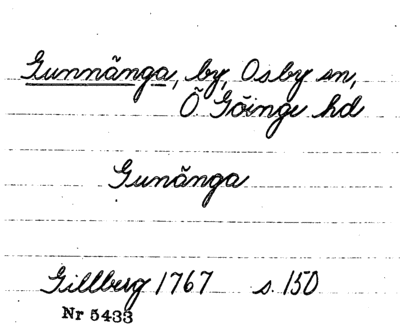 Gunnänga, by, Osby sn,
Ö Göinge hd
Gunänga
Gillberg 1767 s. 150
Nr 5433